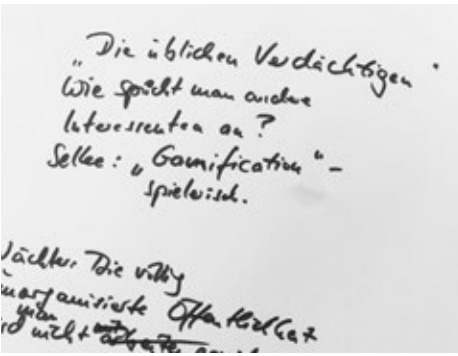 „Die üblichen Verdächtigen"
Wie spricht man andere
Interessenten an?
Selke: „Gamification" –
spielerisch.
Wächter: Die völlig
unorganisierte Öffentlichkeit
man
wird nicht